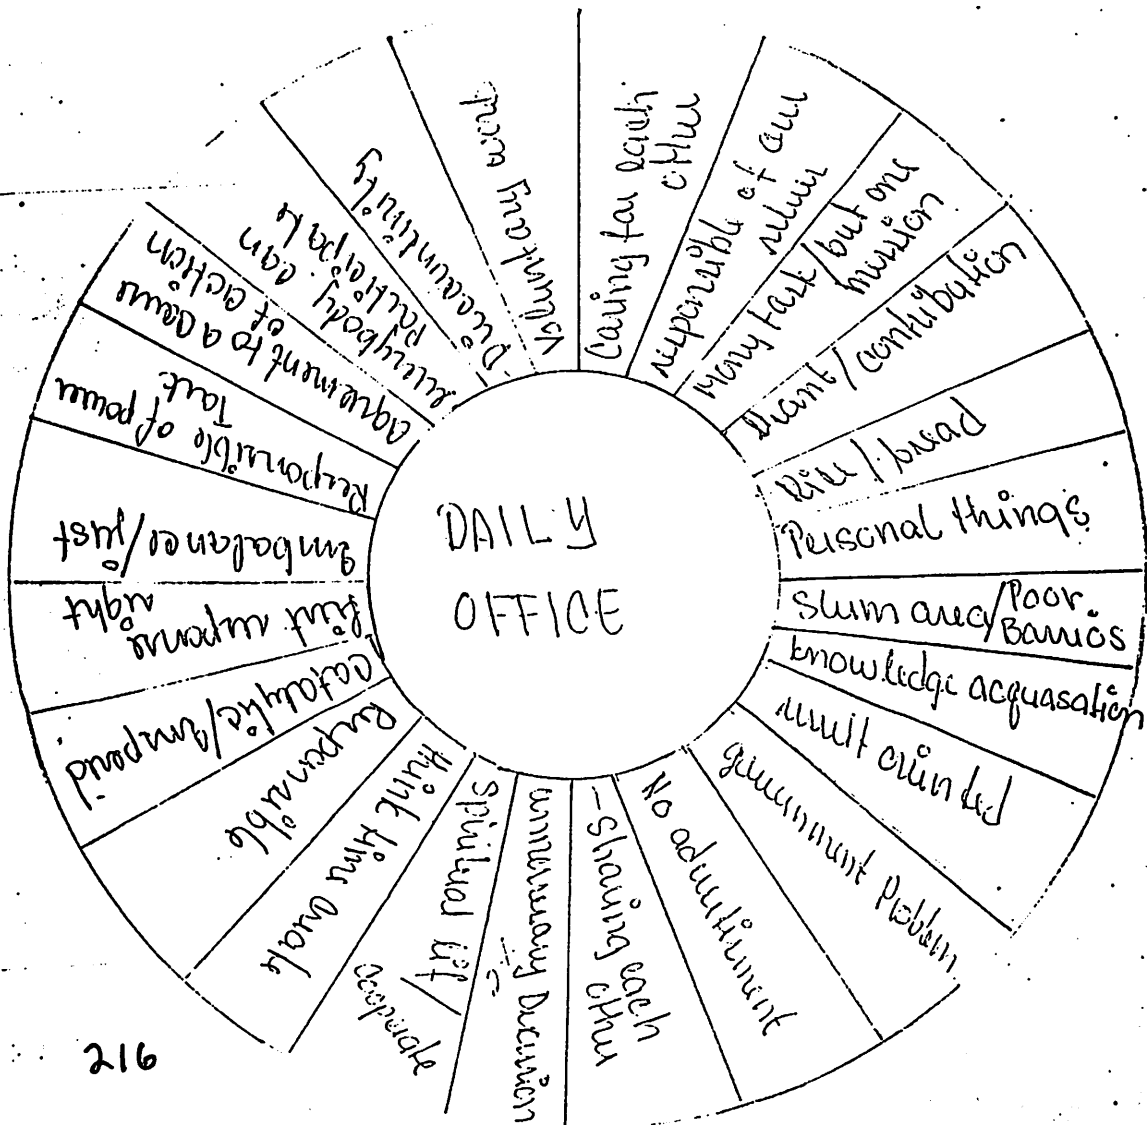 DAILY
OFFICE
Caring for each
other
responsible of our
Many task/but one
mission
/contribution
Rice/bread
Personal things
Slum area/Poor
Barrios
knowledge acquasation
result oriented
government Problem
No advertisment
-Sharing each
other
Spiritual
Corporate
think time
Responsible
Catalytic/
first response
right
Imbalance/just
Responsible of power
Task
agreement to a
of action
everybody can
participate
voluntary work
216